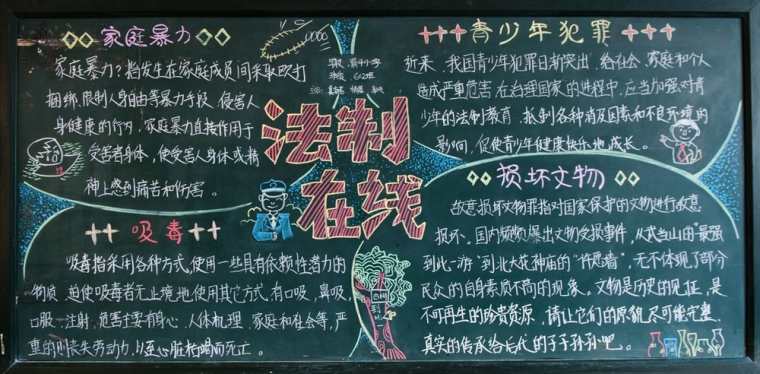 家庭暴力
家庭暴力？指发生在家庭成员间采取殴打
捆绑、限制人身自由等暴力手段，侵害人
身健康的行为，家庭暴力直接作用于
受害者身体，使受害人身体或精
神上感到痛苦和伤害。
法制
在线
青少年犯罪
近来，我国青少年犯罪日渐突出，给社会、家庭和个人
造成严重危害，在治理国家的进程中，应当加强对青
少年的法制教育，抵制各种消极因素和不良环境的
影响，促使青少年健康快乐地成长。
吸毒
吸毒指采用各种方式，使用一些具有依赖性潜力的
物质，迫使吸毒者无止境地使用其它方式，有口吸，鼻吸，
口服，注射，危害主要有身心、人体机理、家庭和社会等，严
重的则丧失劳动力，以至心脏枯竭而死亡。
损坏文物
故意损坏文物罪指对国家保护的文物进行故意
损坏。国内频频爆出文物受损事件，从武当山的"最强
到此一游"到北大花神庙的"许愿墙"，无不体现了部分
民众的自身素质不高的现象。文物是历史的见证，是
不可再生的珍贵资源，请让它们的原貌尽可能完整、
真实的传承给后代的子子孙孙吧。